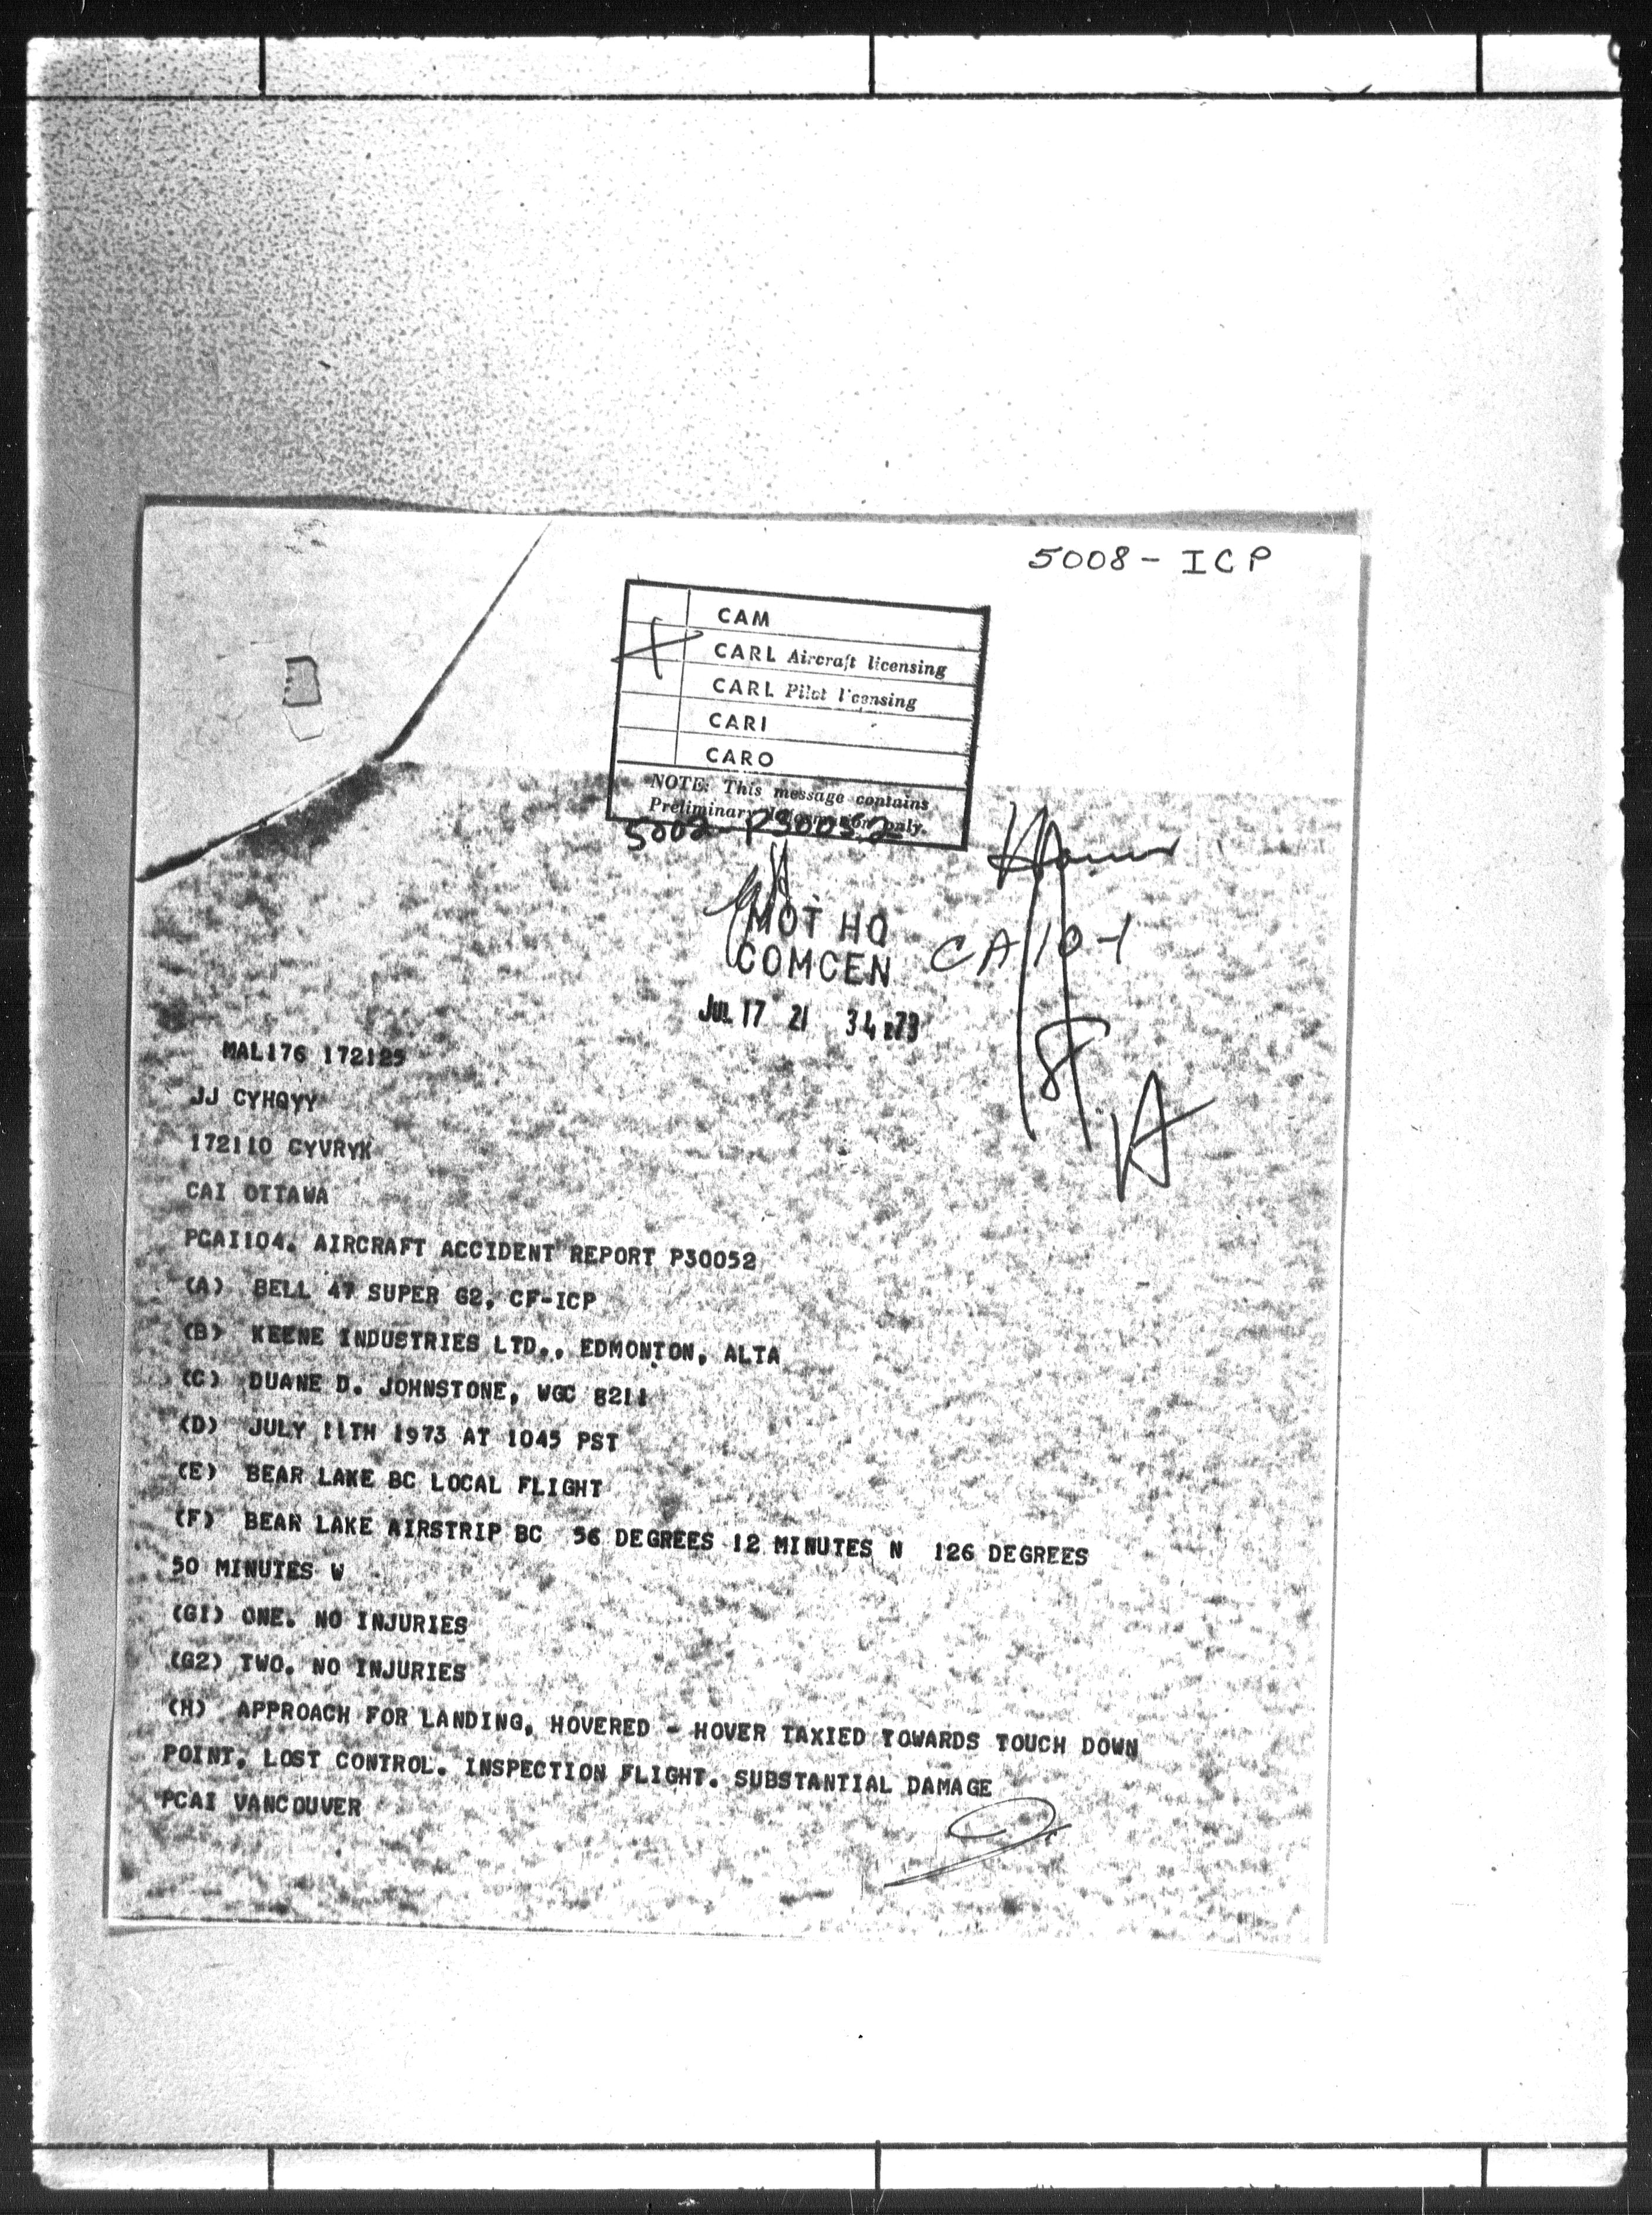 5008-ICP
CAM
CARL Aircraft licensing
CARL Pilot licensing
CARI
CARO
NOTE: This message contains
Preliminary Information only.
5002-P30052
MOT HQ
COMCEN
CA 10-1
JUL 17 21 34 Z 73
MAL176 172125
JJ CYHQYY
172110 CYVRYK
CAI OTTAWA
PCAI104. AIRCRAFT ACCIDENT REPORT P30052
(A) BELL 47 SUPER G2, CF-ICP
(B) KEENE INDUSTRIES LTD., EDMONTON, ALTA
(C) DUANE D. JOHNSTONE, WGC 8211
(D) JULY 11TH 1973 AT 1045 PST
(E) BEAR LAKE BC LOCAL FLIGHT
(F) BEAR LAKE AIRSTRIP BC 56 DEGREES 12 MINUTES N 126 DEGREES
50 MINUTES W
(G1) ONE. NO INJURIES
(G2) TWO. NO INJURIES
(H) APPROACH FOR LANDING, HOVERED - HOVER TAXIED TOWARDS TOUCH DOWN
POINT. LOST CONTROL. INSPECTION FLIGHT. SUBSTANTIAL DAMAGE
PCAI VANCOUVER